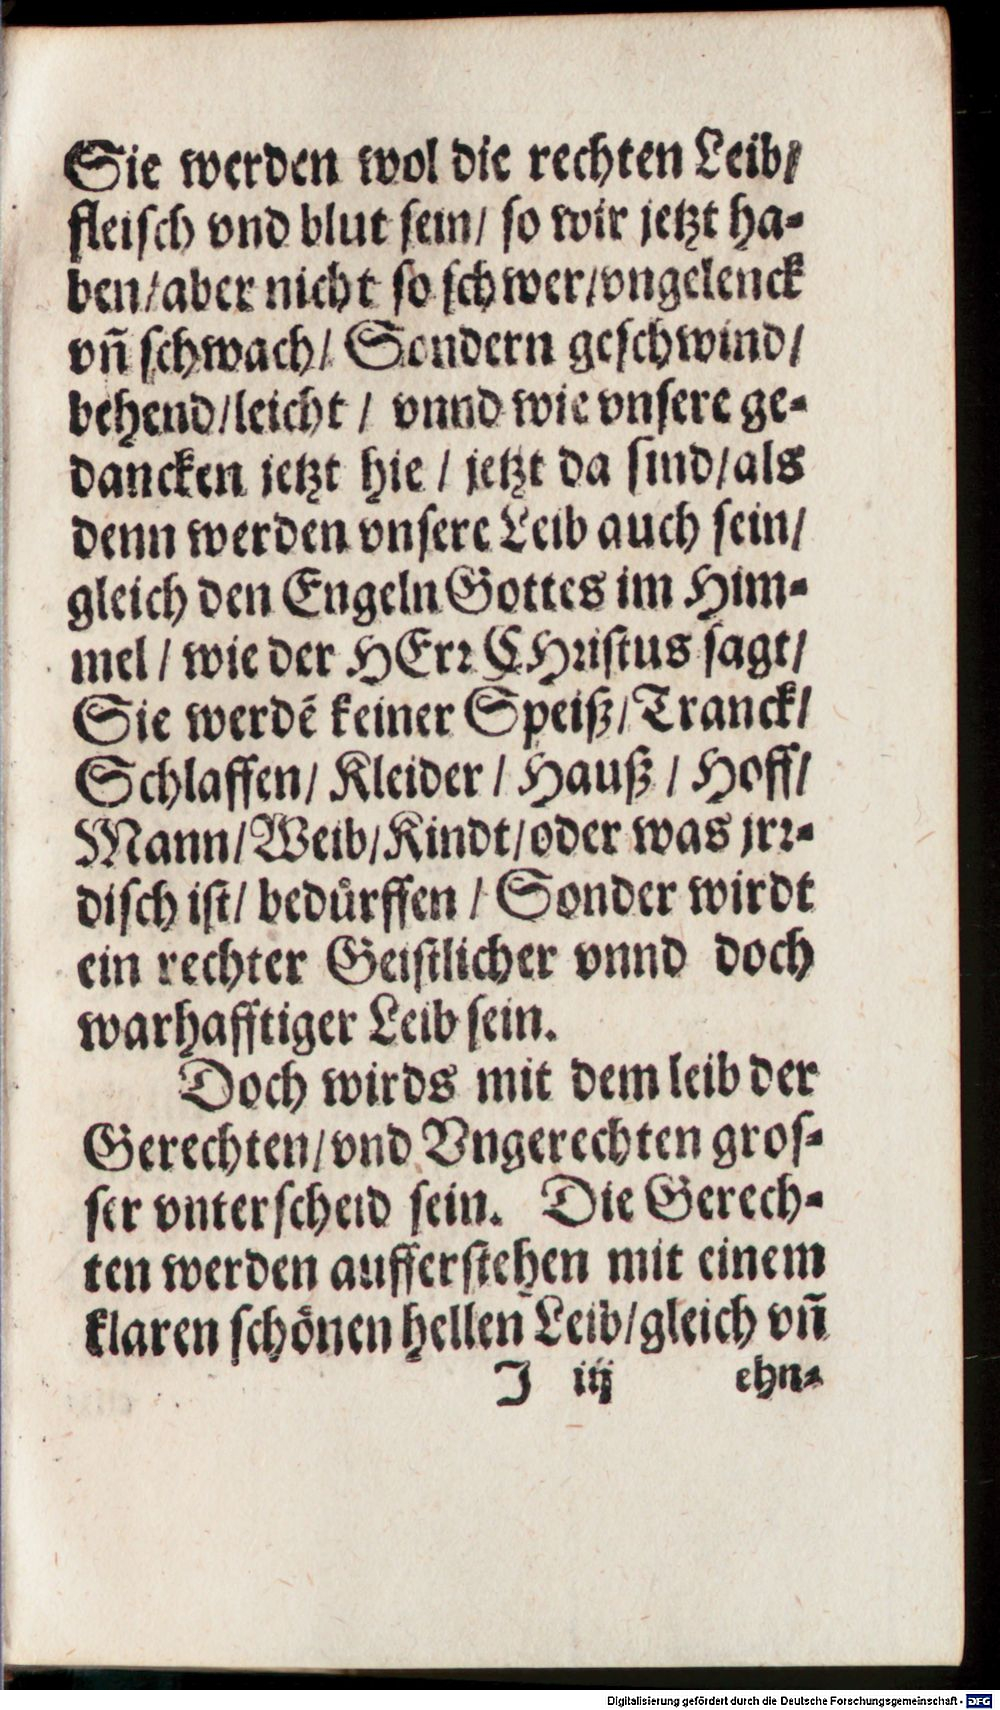 Sie werden wol die rechten Leib/
fleisch vnd blut sein/ so wir jetzt ha-
ben/aber nicht so schwer/vngelenck
vñ schwach/ Sondern geschwind/
behend/leicht / vnnd wie vnsere ge-
dancken jetzt hie / jetzt da sind/als
denn werden vnsere Leib auch sein/
gleich den Engeln Gottes im Him-
mel / wie der HErr CHristus sagt/
Sie werdẽ keiner Speiß/Tranck/
Schlaffen/ Kleider / Hauß / Hoff/
Mann/Weib/Kindt/oder was jrr-
disch ist/ bedůrffen / Sonder wirdt
ein rechter Geistlicher vnnd doch
warhafftiger Leib sein.
Doch wirds mit dem leib der
Gerechten/vnd Vngerechten gros-
ser vnterscheid sein. Die Gerech-
ten werden aufferstehen mit einem
klaren schönen hellen Leib/gleich vñ
J iij ehn-
Digitalisierung gefördert durch die Deutsche Forschungsgemeinschaft - DFG